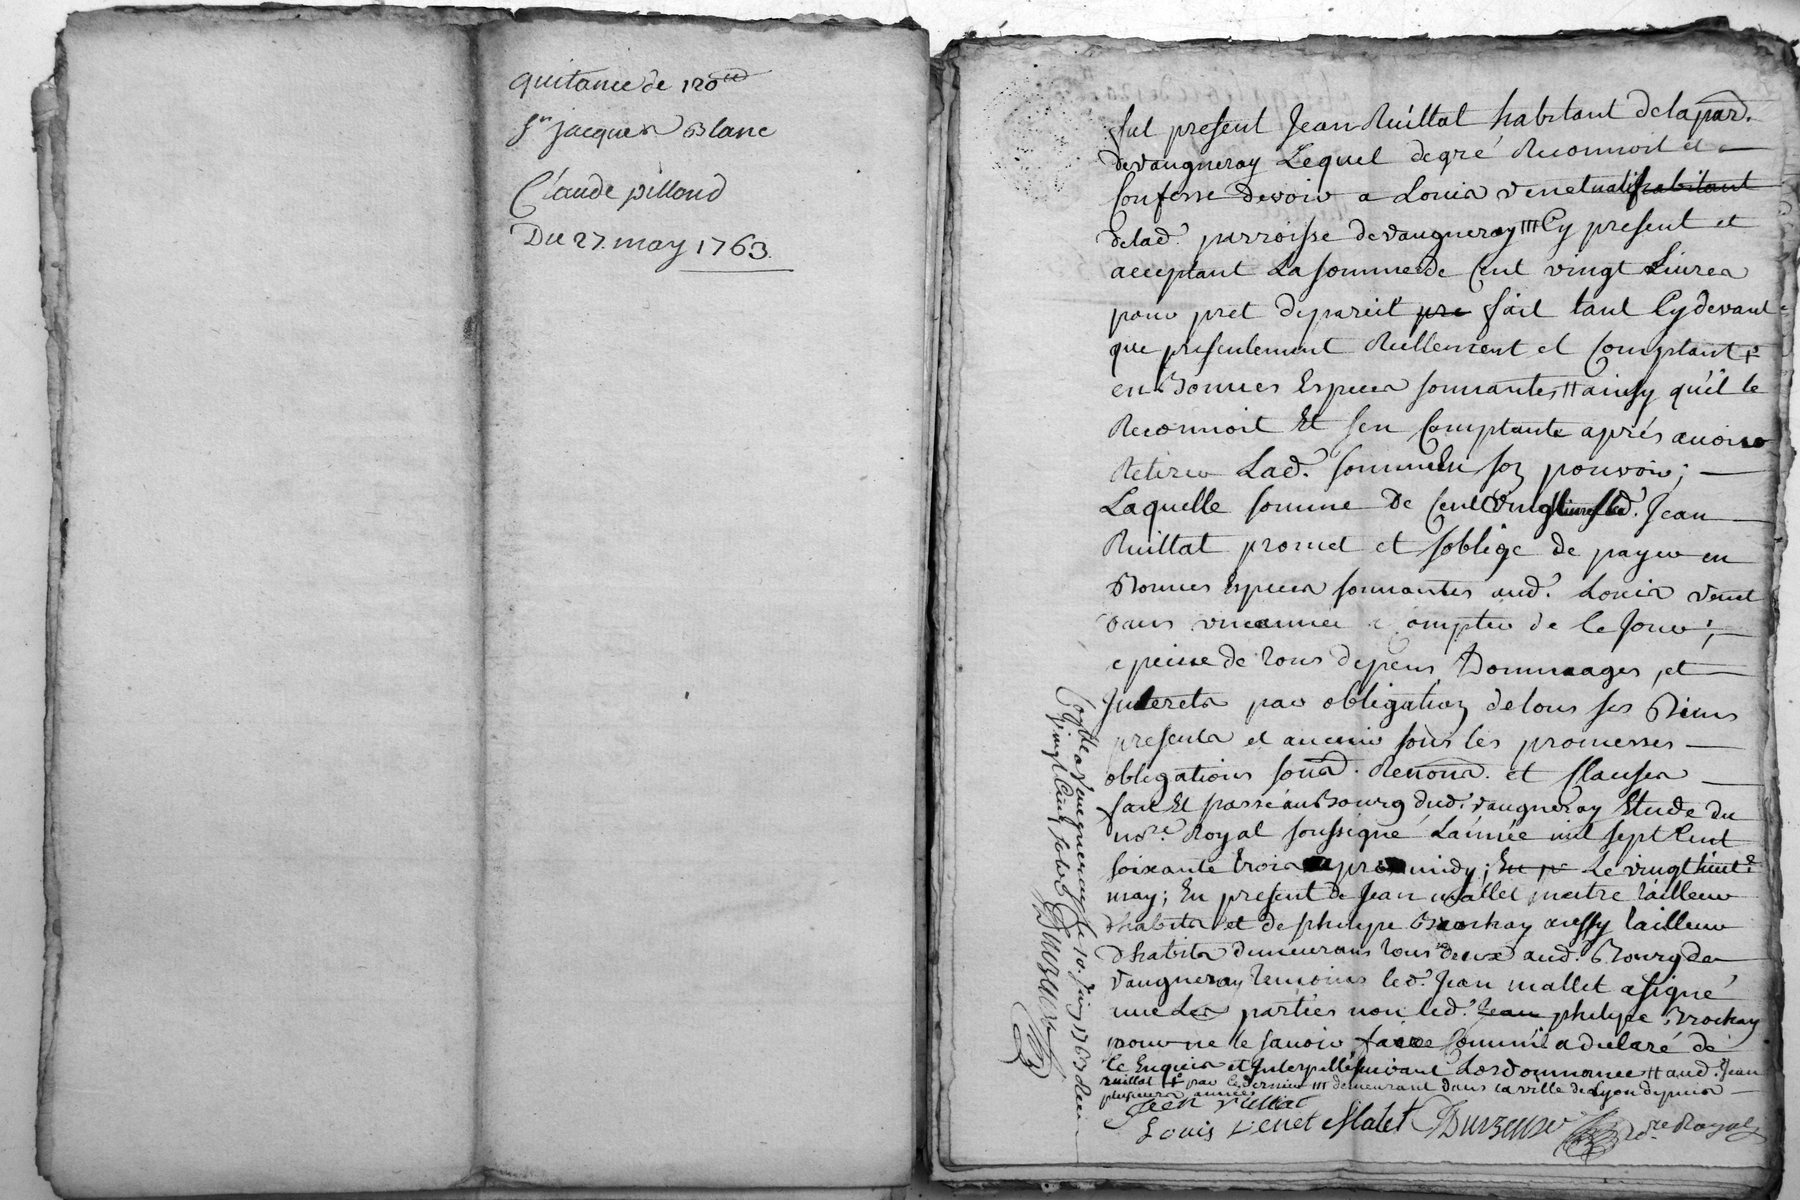 quitance de 120ᵗᵗ
Sʳ jacques Blanc
Claude pilloud
Du 27 may 1763.
fut present Jean Ruillat habitant de la par.
de vaugneray Lequel de gré Reconnoit et
Confesse devoir a Louis Venet natif habitant
de lad. parroisse de vaugneray III Cy present et
acceptant La somme de Cent vingt Livres
pour pret de pareil pre fait tant Cydevant
que presentement Reellement et Comptant ‡
en Bonnes Especes sonnantes, II ainsy qu'il le
Reconnoit Et sen Comptante aprés auoir
Retirer Lad. somme En son pouvoir;
Laquelle somme De Cent vingt livres led. Jean
Ruillat promet et soblige de payer en
Bonnes Especes sonnantes aud. Louis Venet
dans une année a Compter de Ce Jour;
a peine de tous depens, Dommages, et
Interets par obligation de tous ses Biens
presents et auenir sous les promesses
obligations soud. Renond. et Clauses
fait Et passé au Bourg dud. vaugneray Etude du
noʳᵉ Royal soussigné L'année mil sept Cent
soixante trois apres midy; En pr Le vingt huitᵉ
may; En present de Jean mallet maitre tailleur
dhabits et de philipe Brochay aussy tailleur
Dhabits demeurans tous deux aud. Bourg de
vaugneray temoins led. Jean mallet a signé
avec Les parties non led. Jean philipe Brochay
pour ne le sauoir faire Comm'il a declaré de
Ce Enquis et Interpellé suivant Lordonnance II aud. Jean
ruillat ‡ par Ce dernier III demeurant dans la ville de Lyon depuis
plusieurs années
Jean rullat
Louis Venet Malet Duvzeuse noʳᵉ Royal
Coqtlé a vaugneray le 10. Juin 1763 Receu
vingt Cinq sols